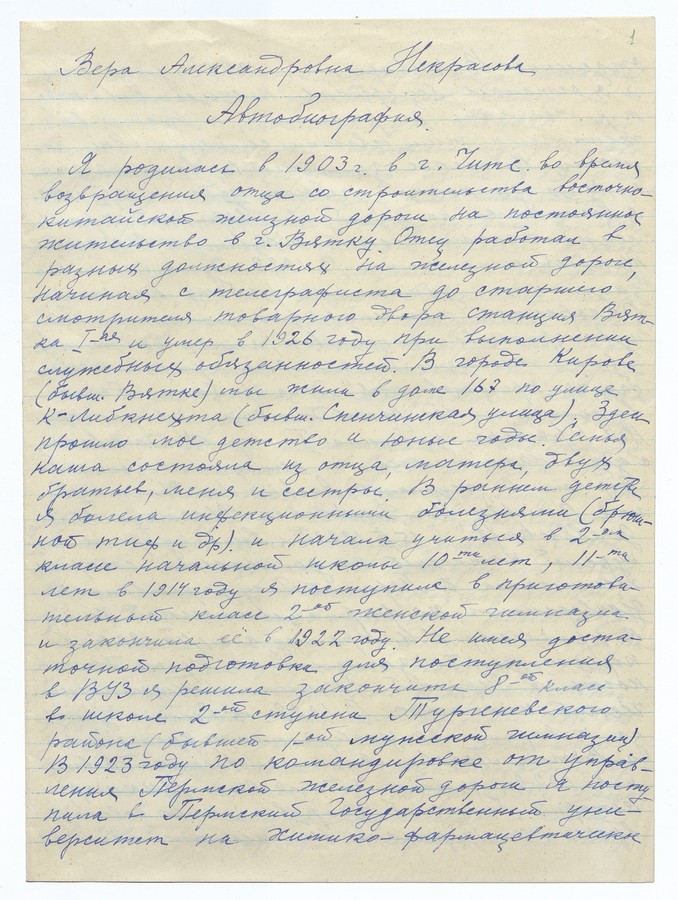 1
Вера Александровна Некрасова
Автобиография.
Я родилась в 1903 г. в г. Чите во время
возвращения отца со строительства восточно-
китайской железной дороги на постоянное
жительство в г. Вятку. Отец работал в
разных должностях на железной дороге,
начиная с телеграфиста до старшего
смотрителя товарного двора станция Вят-
ка I-ая и умер в 1926 году при выполнении
служебных обязанностей. В городе Кирове
(бывш. Вятке) мы жили в доме 167 по улице
К-Либкнехта (бывш. Спенчинская улица). Здесь
прошло мое детство и юные годы. Семья
наша состояла из отца, матери, двух
братьев, меня и сестры. В раннем детстве
я болела инфекционными болезнями (брюш-
ной тиф и др). и начала учиться в 2-ом
классе начальной школы 10ти лет, 11-ти
лет в 1914 году я поступила в приготови-
тельный класс 2-ой женской гимназии
и закончила её в 1922 году. Не имея доста-
точной подготовки для поступления
в ВУЗ я решила закончить 8-ой класс
в школе 2-ой ступени Тургеневского
района (бывшей 1-ой мужской гимназии)
В 1923 году по командировке от управ-
ления Пермской железной дороги я посту-
пила в Пермский Государственный уни-
верситет на химико-фармацевтически